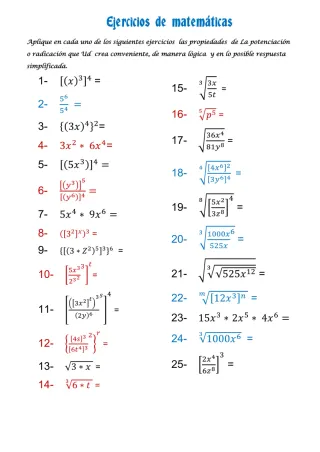 Ejercicios de matemáticas
Aplique en cada uno de los siguientes ejercicios las propiedades de La potenciación
o radicación que Ud crea conveniente, de manera lógica y en lo posible respuesta
simplificada.
1- [(x)³]⁴ =
2- 5⁶/5⁴ =
3- {(3x)⁴}² =
4- 3x² * 6x⁴=
5- [(5x³)]⁴ =
6- [(y³)]⁵/[(y⁶)]⁴ =
7- 5x⁴ * 9x⁶ =
8- ([3²]ˣ)³ =
9- ([(3 + Z²)⁵]³)⁶ =
10- [5x³/2x²]ᵗ =
11- [([3x²]ᵗ)³/(2y)⁶]⁴ =
12- {[4s]³/[6t⁴]³}ʳ =
13- √(3 * x) =
14- ∛(6 * t) =
15- ∛(3x/5t) =
16- ⁵√(p⁵) =
17- √(36x⁴/81y⁸) =
18- ∜([4x⁶]²/[3y⁶]⁴) =
19- ⁸√([5x²/3z⁸]⁴) =
20- ∛(1000x⁶/525x) =
21- √∛√(525x¹²) =
22- ᵐ√([12x³]ⁿ) =
23- 15x³ * 2x⁵ * 4x⁶ =
24- ∛(1000x⁶) =
25- [2x⁴/6z⁸]³